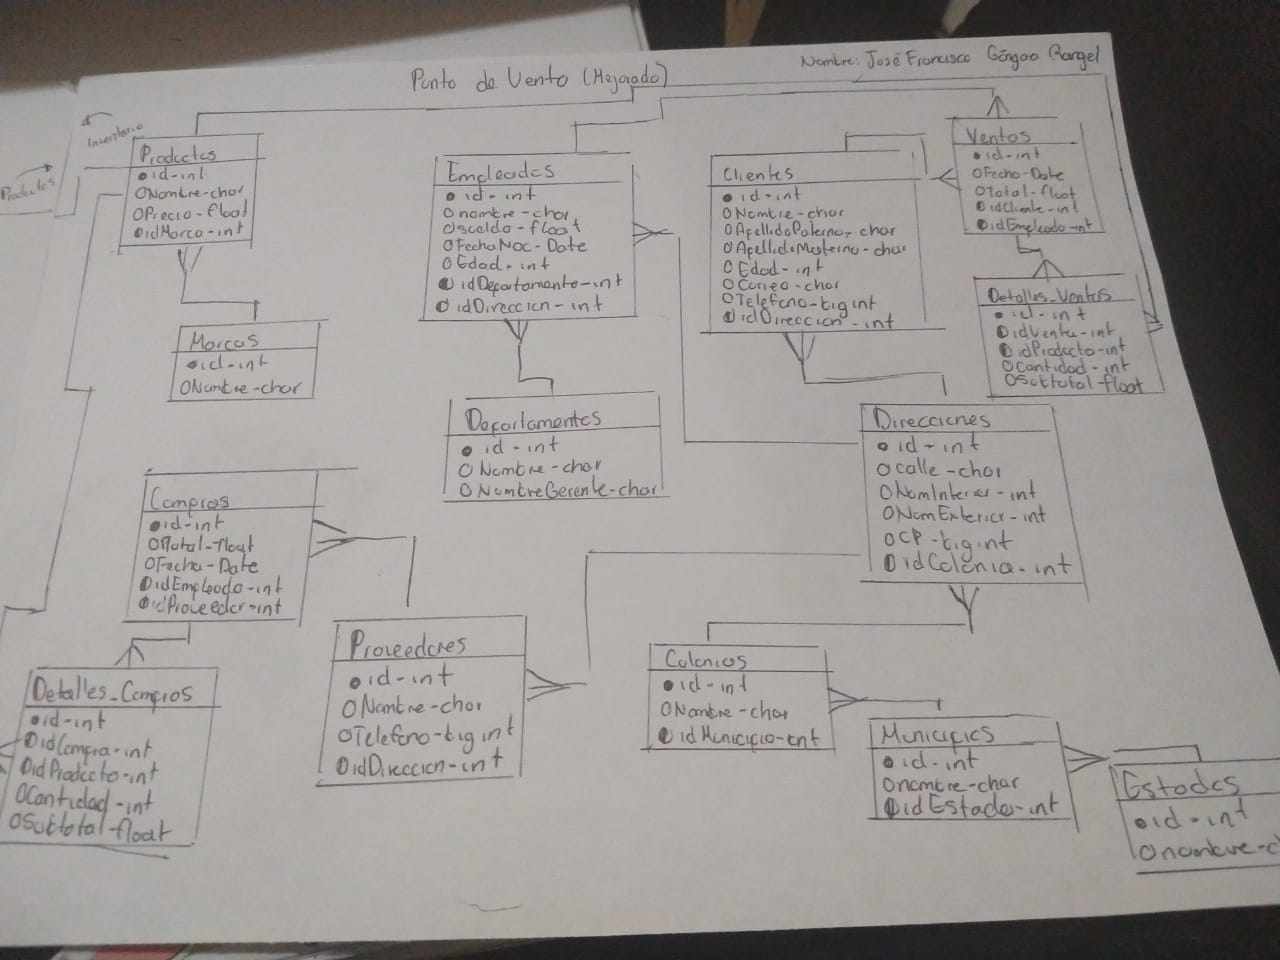 Punto de Venta (Mejorado)
Nombre: José Francisco Góngora Rangel
Inventario
Productos
Productos
●id-int
ONombre-char
OPrecio-float
OidMarca-int
Marcas
●id-int
ONombre-char
Empleados
●id-int
Onombre-char
Osueldo-float
OFechaNac-Date
OEdad-int
OidDepartamento-int
OidDireccion-int
Departamentos
●id-int
ONombre-char
ONombreGerente-char
Clientes
●id-int
ONombre-char
OApellidoPaterno-char
OApellidoMaterno-char
OEdad-int
OCorreo-char
OTelefono-bigint
OidDireccion-int
Ventas
●id-int
OFecha-Date
OTotal-float
OidCliente-int
OidEmpleado-int
Detalles_Ventas
●id-int
OidVenta-int
OidProducto-int
OCantidad-int
OSubtotal-float
Direcciones
●id-int
Ocalle-char
ONumInterior-int
ONumExterior-int
OCP-bigint
OidColonia-int
Compras
●id-int
OTotal-float
OFecha-Date
OidEmpleado-int
OidProveedor-int
Detalles_Compras
●id-int
OidCompra-int
OidProducto-int
OCantidad-int
OSubtotal-float
Proveedores
●id-int
ONombre-char
OTelefono-bigint
OidDireccion-int
Colonias
●id-int
ONombre-char
OidMunicipio-int
Municipios
●id-int
Onombre-char
OidEstados-int
Estados
●id-int
Onombre-c